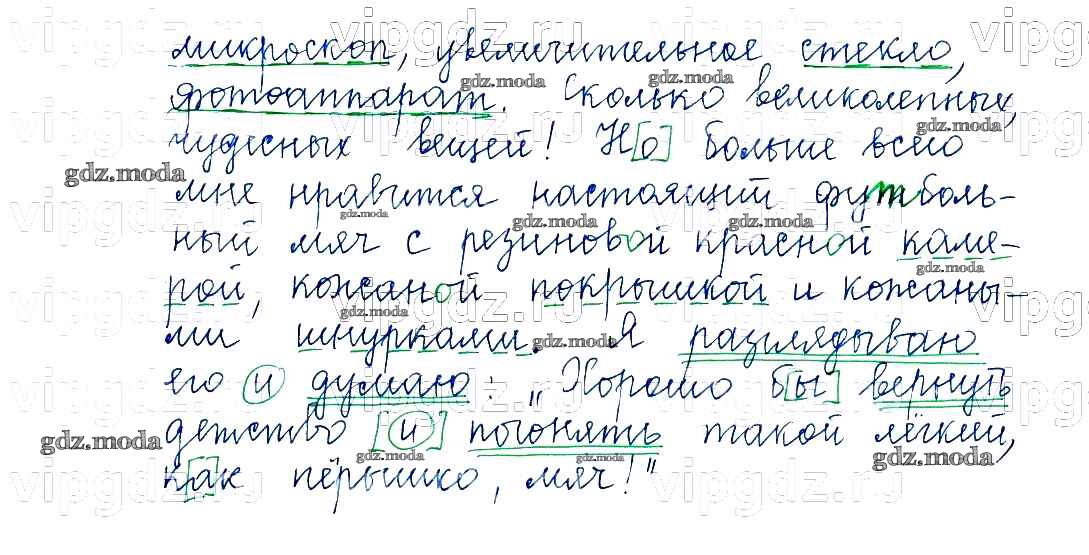 микроскоп, увеличительное стекло,
фотоаппарат. Сколько великолепных,
чудесных вещей! Н[о] больше всего
мне нравится настоящий футболь-
ный мяч с резиновой красной каме-
рой, кожаной покрышкой и кожаны-
ми шнурками. Я разглядываю
его и думаю: „Хорошо б[ы] вернуть
детство [и] погонять такой лёгкий,
к[а]к пёрышко, мяч!"
vipgdz.ru
gdz.moda